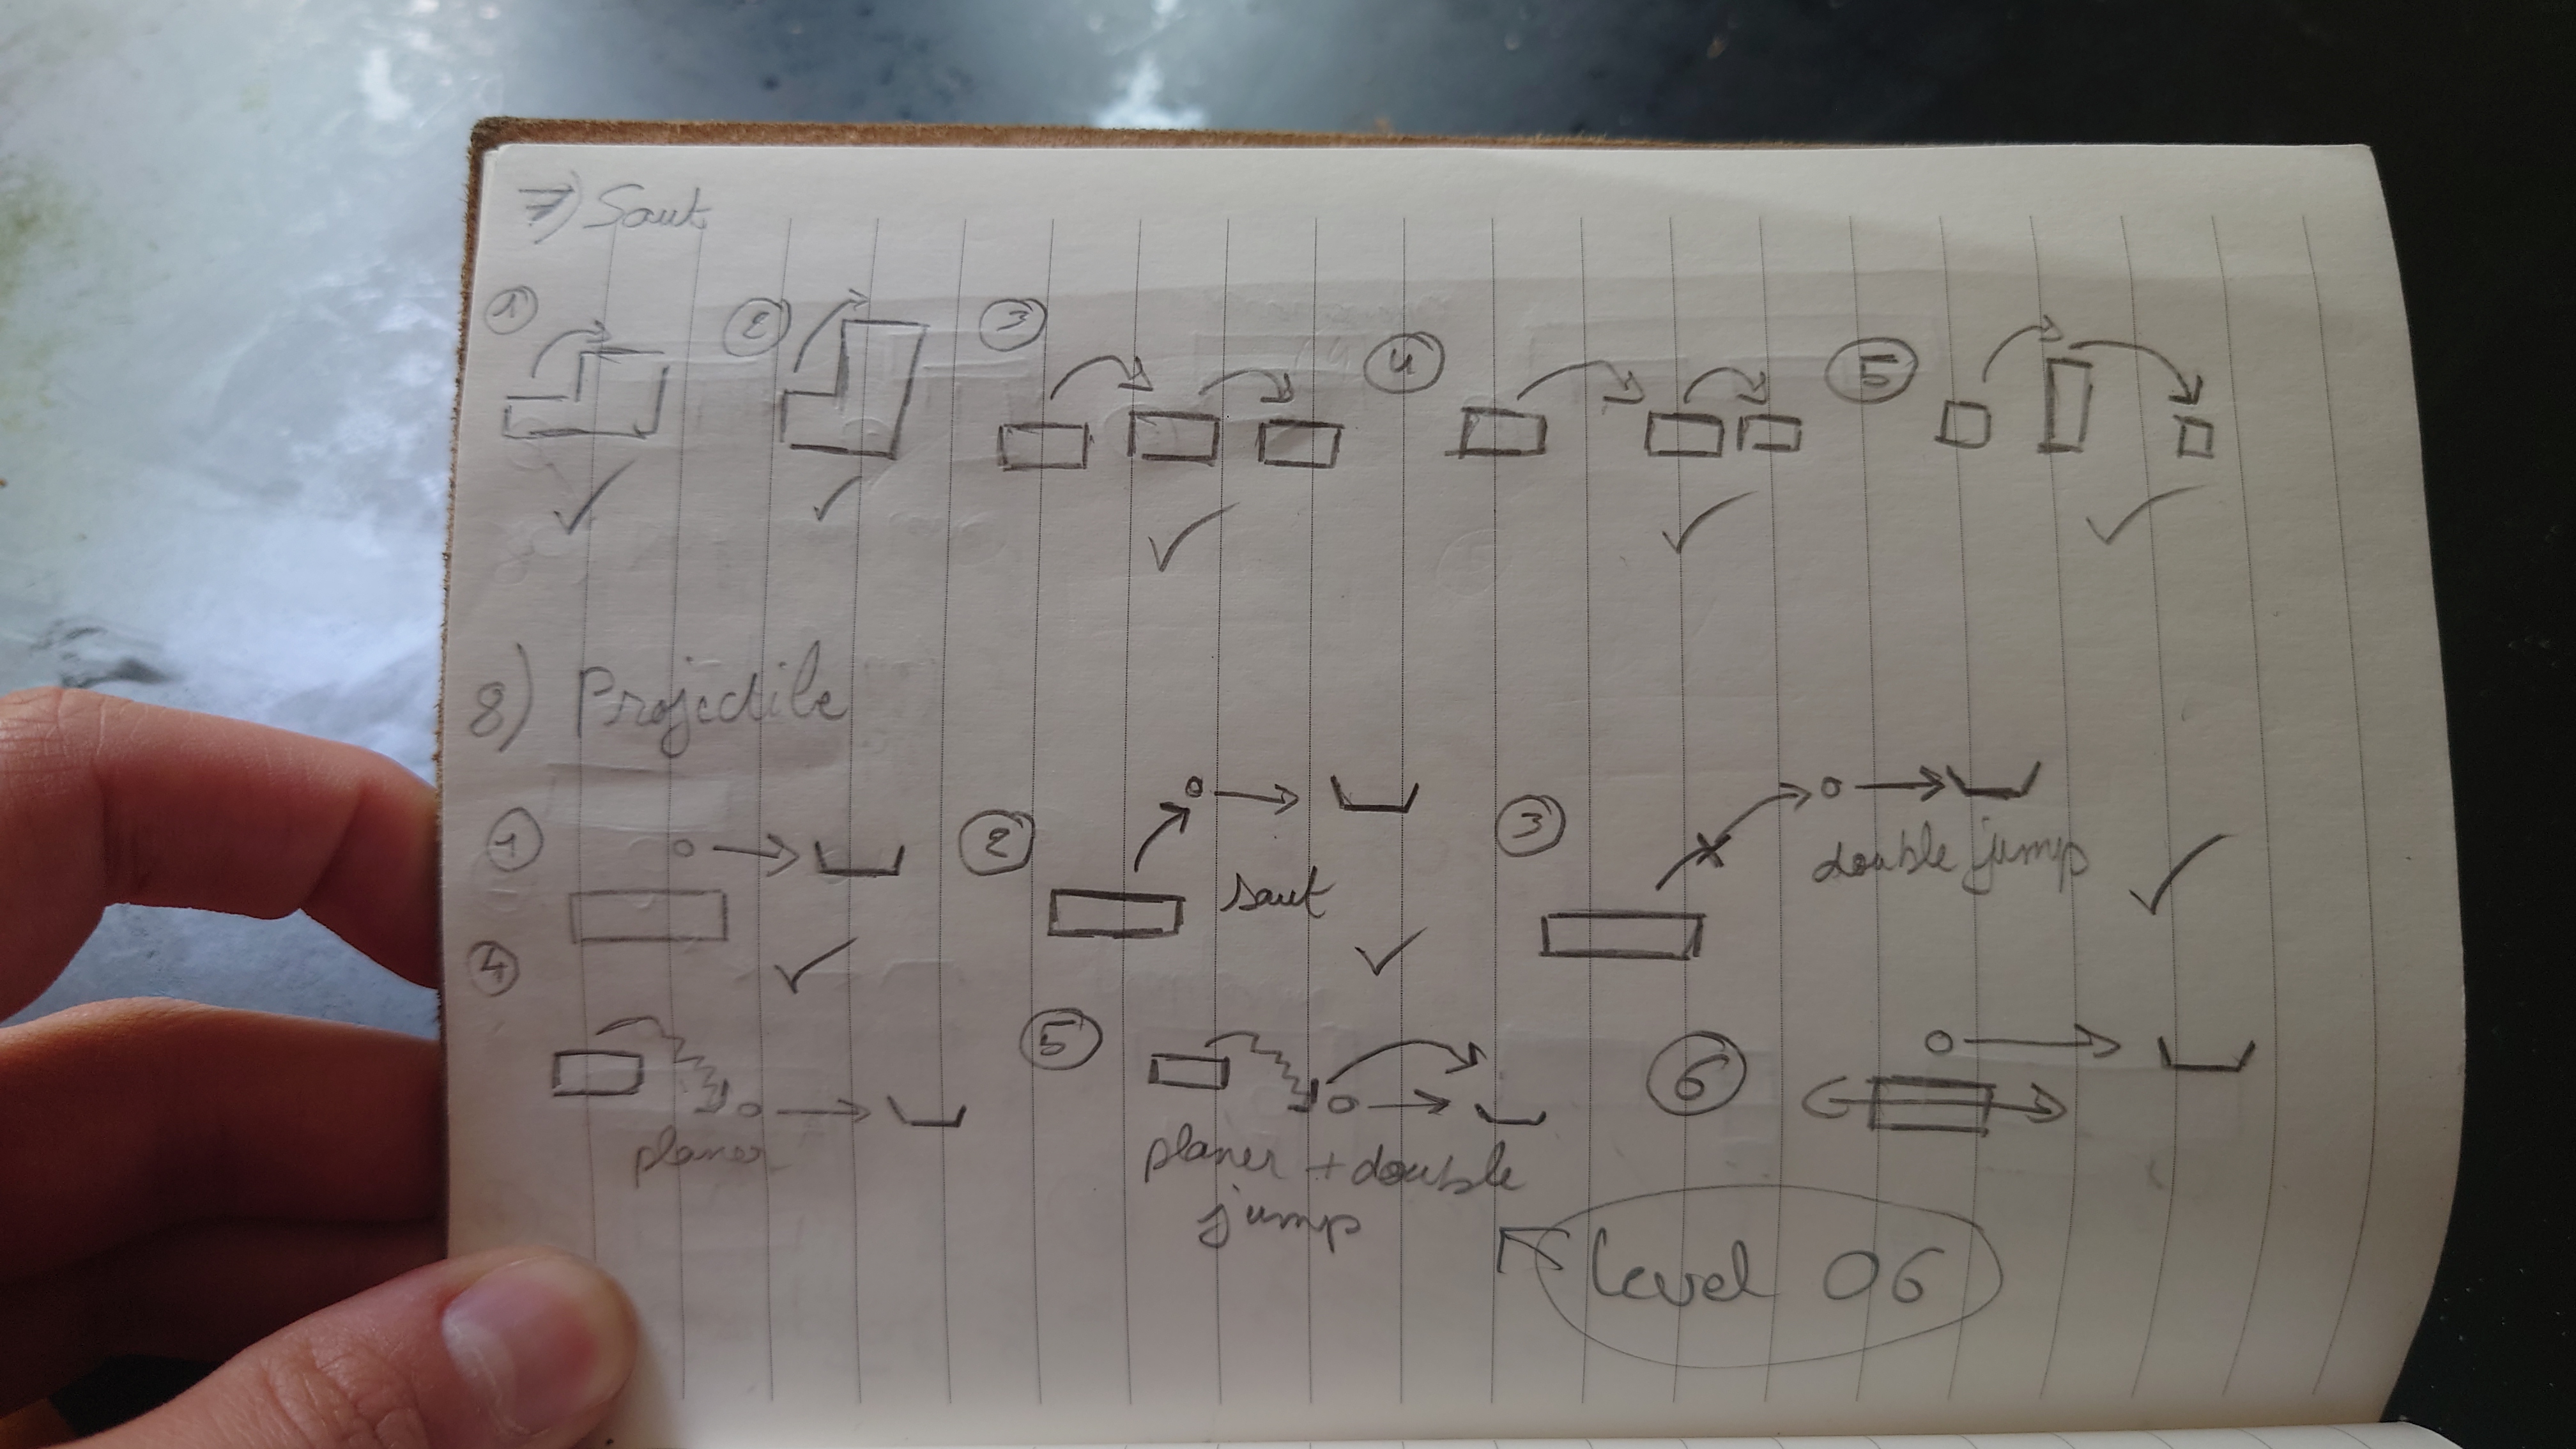 7) Saut
1 2 3 4 5
8) Projectile
1 2 saut 3 double jump
4 planer 5 planer + double
jump
6
Level 06